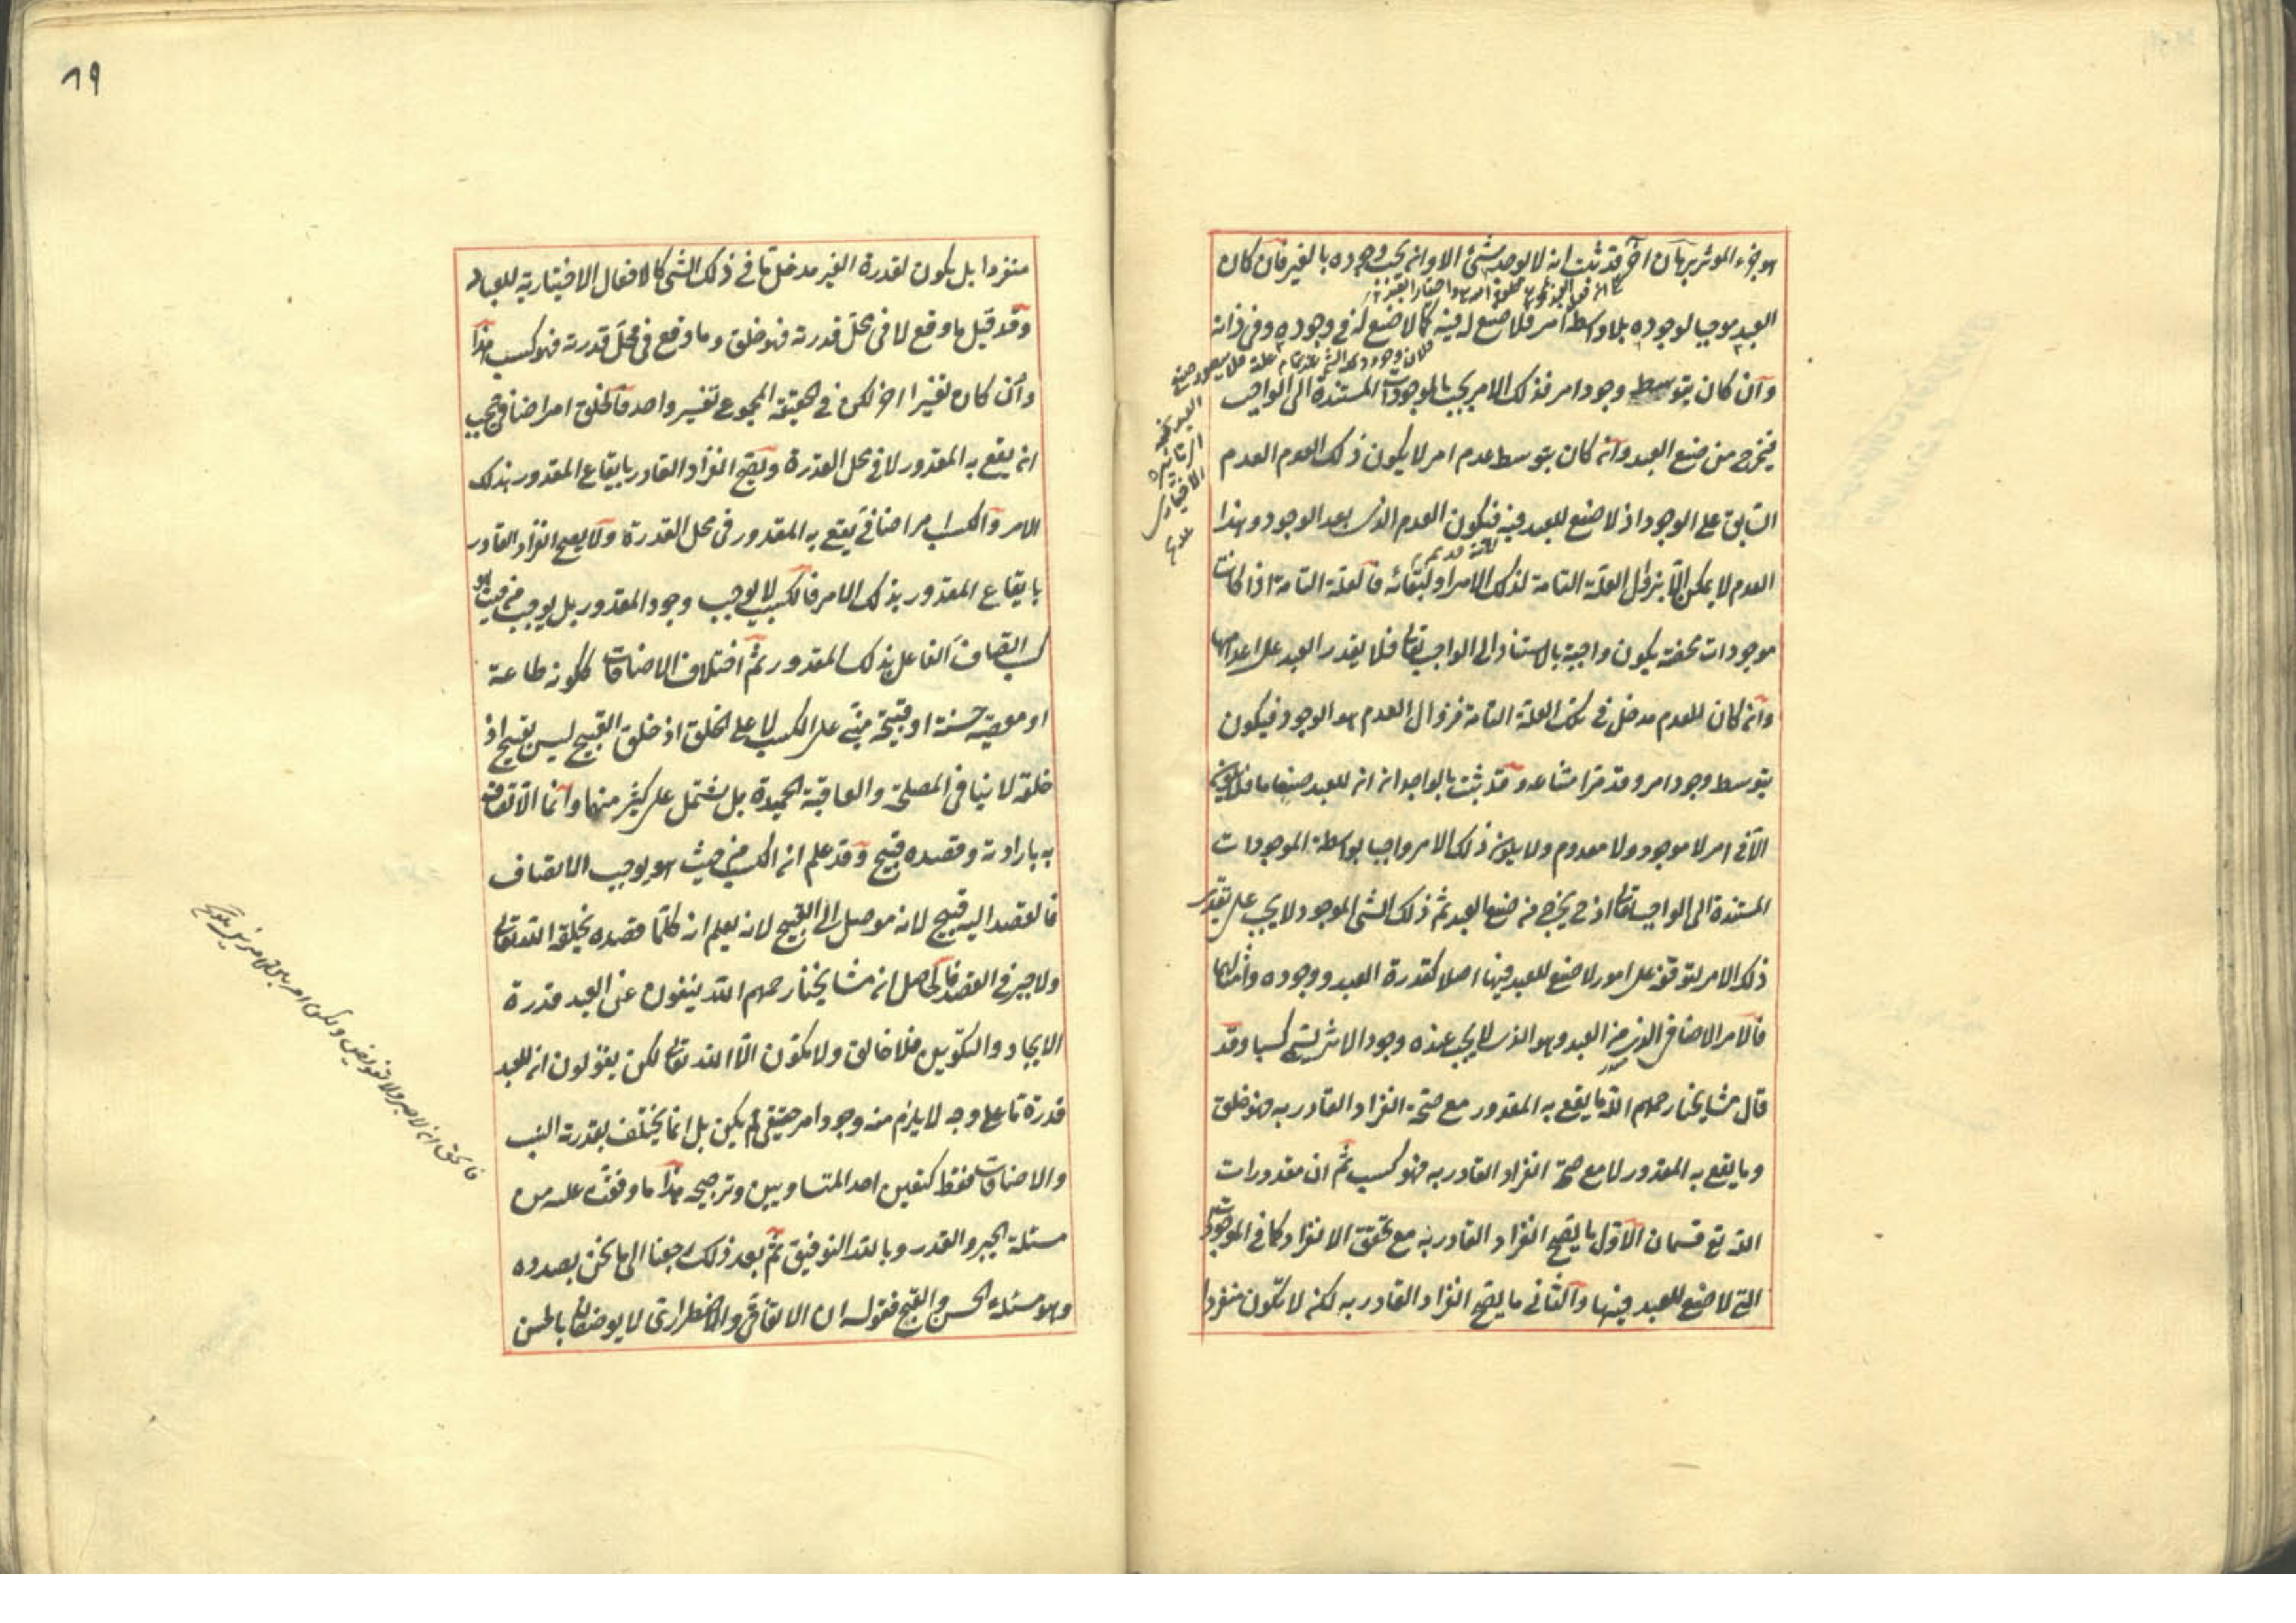 هو جزء الموثر برهان آخر قد ثبت انه لا يوجد شئ الا وان يجب وجوده بالغير فان كان
العبد موجبا لوجوده بلا واسطة امر فلا صنع له فيه كما لا صنع له في وجوده وفي ذاته
وان كان بتوسط وجود امر فذلك الامر يجب بالموجودات المستندة الى الواجب
فيخرج من صنع العبد وان كان بتوسط عدم امر لا يكون ذلك العدم العدم
السابق على الوجود اذ لا صنع للعبد فيه فيكون العدم الذى بعد الوجود وهذا
العدم لا يمكن الا بزوال العلة التامة لذلك الامر او لبقائه فالعلة التامة اذا كانت
موجودات محضة يكون واجبة بالاستناد الى الواجب تعالى فلا يقدر العبد على اعدامها
وان كان للعدم مدخل في تلك العلة التامة فزوال العدم هو الوجود فيكون
بتوسط وجود امر وقد مر امتناعه وقد ثبت بالوجدان ان للعبد صنعا ما فلا يكون
الا في امر لا موجود ولا معدوم ولا يكون ذلك الامر واجبا بواسطة الموجودات
المستندة الى الواجب تعالى اذ ح يخرج من صنع العبد ثم ذلك الشئ الموجود لا يجب على تقدير
ذلك الامر لتوقفه على امور لا صنع للعبد فيها اصلا كقدرة العبد ووجوده وامثالهما
فالامر الاضافي الذى من العبد وهو الذى لا يجب عنده وجود الاثر يسمى كسبا وقد
قال مشايخنا رحمهم الله ما يقع به المقدور مع صحة انفراد القادر به فهو خلق
وما يقع به المقدور لا مع صحة انفراد القادر به فهو كسب ثم ان مقدورات
الله تع قسمان الاول ما يصح انفراد القادر به مع تحقق الانفراد كما في الموجودات
التي لا صنع للعبد فيها والثاني ما يصح انفراد القادر به لكنه لا يكون منفردا
٨٩
منفردا بل يكون لقدرة الغير مدخل ما في ذلك الشئ كالافعال الاختيارية للعباد
وقد قيل ما وقع لا في محل قدرته فهو خلق وما وقع في محل قدرته فهو كسب هذا
وان كان تفسيرا اخر لكن في الحقيقة المجموع تفسير واحد فالخلق امر اضافي يجب
ان يقع به المقدور لا في محل القدرة ويصح انفراد القادر بايقاع المقدور بذلك
الامر والكسب امر اضافي يقع به المقدور في محل القدرة ولا يصح انفراد القادر
بايقاع المقدور بذلك الامر فالكسب لا يوجب وجود المقدور بل يوجب من حيث هو
كسب اتصاف الفاعل بذلك المقدور ثم اختلاف الاضافات ككونه طاعة
او معصية حسنة او قبيحة مبني على الكسب لا على الخلق اذ خلق القبيح ليس بقبيح اذ
خلقه لا ينافى المصلحة والعاقبة الحميدة بل يشتمل على كثير منها وانما الاتصاف
به بارادته وقصده قبيح وقد علم ان الكسب من حيث هو يوجب الاتصاف
فالقصد اليه قبيح لانه موصل الى القبيح لانه يعلم انه كلما قصده يخلقه الله تعالى
ولا جبر في القصد فالحاصل ان مشايخنا رحمهم الله ينفون عن العبد قدرة
الايجاد والتكوين فلا خالق ولا مكون الا الله تعالى لكن يقولون ان للعبد
قدرة ما على وجه لا يلزم منه وجود امر حقيقي لم يكن بل انما يختلف بقدرته النسب
والاضافات فقط كتعيين احد المتساويين وترجيحه هذا ما وقفت عليه من
مسئلة الجبر والقدر وبالله التوفيق ثم بعد ذلك رجعنا الى ما نحن بصدده
وهو مسئلة الحسن والقبح فقوله ان الاتفاقي والاضطرارى لا يوصفان بالحسن
فالحق ان لا جبر ولا تفويض ولكن امر بين امرين